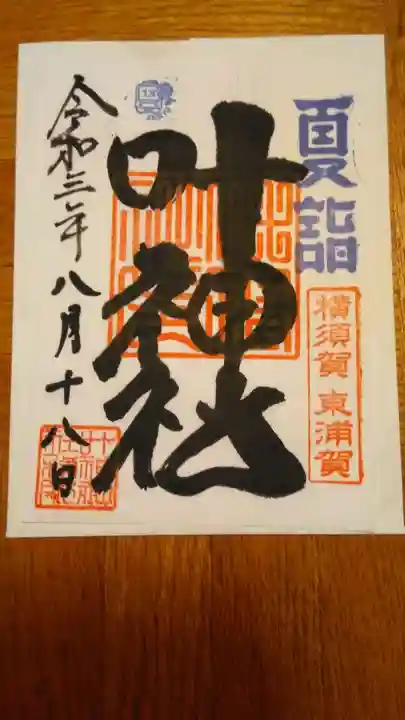 夏詣
横須賀 東浦賀
叶神社
令和三年八月十八日